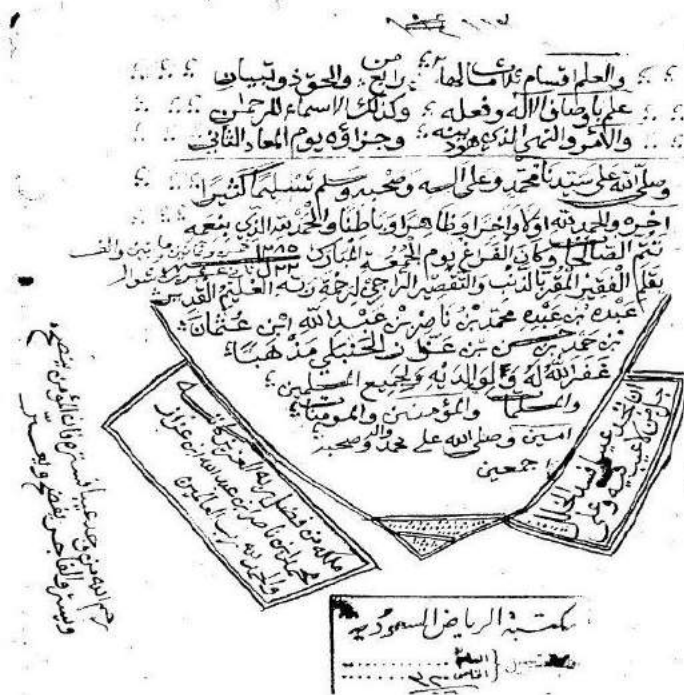 والعلم اقسام ثلاث مالها من رابع والحق ذو تبيان
علم باوصاف الاله وفعله وكذلك الاسماء للرحمن
والامر والنهي الذي هو دينه وجزاؤه يوم المعاد الثاني
وصلى الله على سيدنا محمد وعلى اله وصحبه وسلم تسليما كثيرا
اخره والحمد لله اولا واخرا وظاهرا وباطنا والحمد لله الذي بنعمه
تتم الصالحات وكان الفراغ يوم الجمعة المبارك ٢٢ ١٢٨٥ خمسة وثمانين ومائتين والف
بقلم الفقير المقر بالذنب والتقصير الراجي لرحمة ربه العلي القدير
عبده بن عبده محمد بن ناصر بن عبد الله ابن عثمان
بن حمد بن حسن بن عنوان الحنبلي مذهبا
غفر الله له ولوالديه ولجميع المسلمين
والمسلمات والمؤمنين والمومنات
امين وصلى الله على محمد واله وصحبه
اجمعين
ان تجد عيبا فسد الخللا
جل من لا عيب فيه وعلا
ملكه من فضل ربه العزيز
محمد ابن ناصر بن عبد الله ابن عثمان
والحمد لله رب العالمين
رحم الله من وجد عيبا فستره فان المؤمن ينصح
ويستر والفاجر يفضح ويعير
مكتبة الرياض السعودية